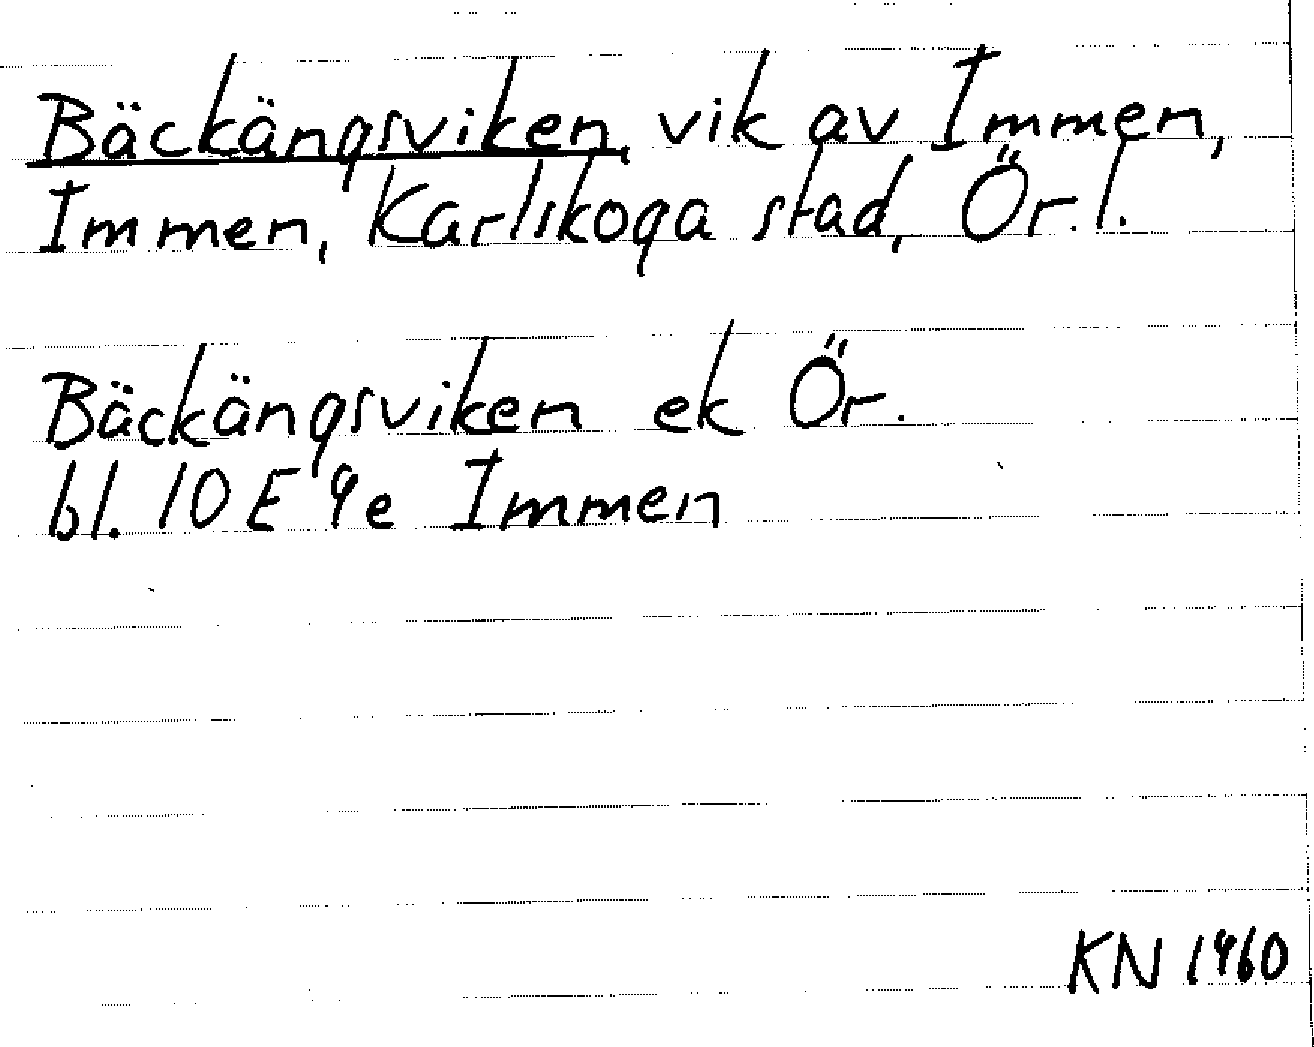 Bäckängsviken, vik av Immen,
Immen, Karlskoga stad, Ör. l.
Bäckängsviken ek Ör.
bl. 10 E 9e Immen
KN 1960